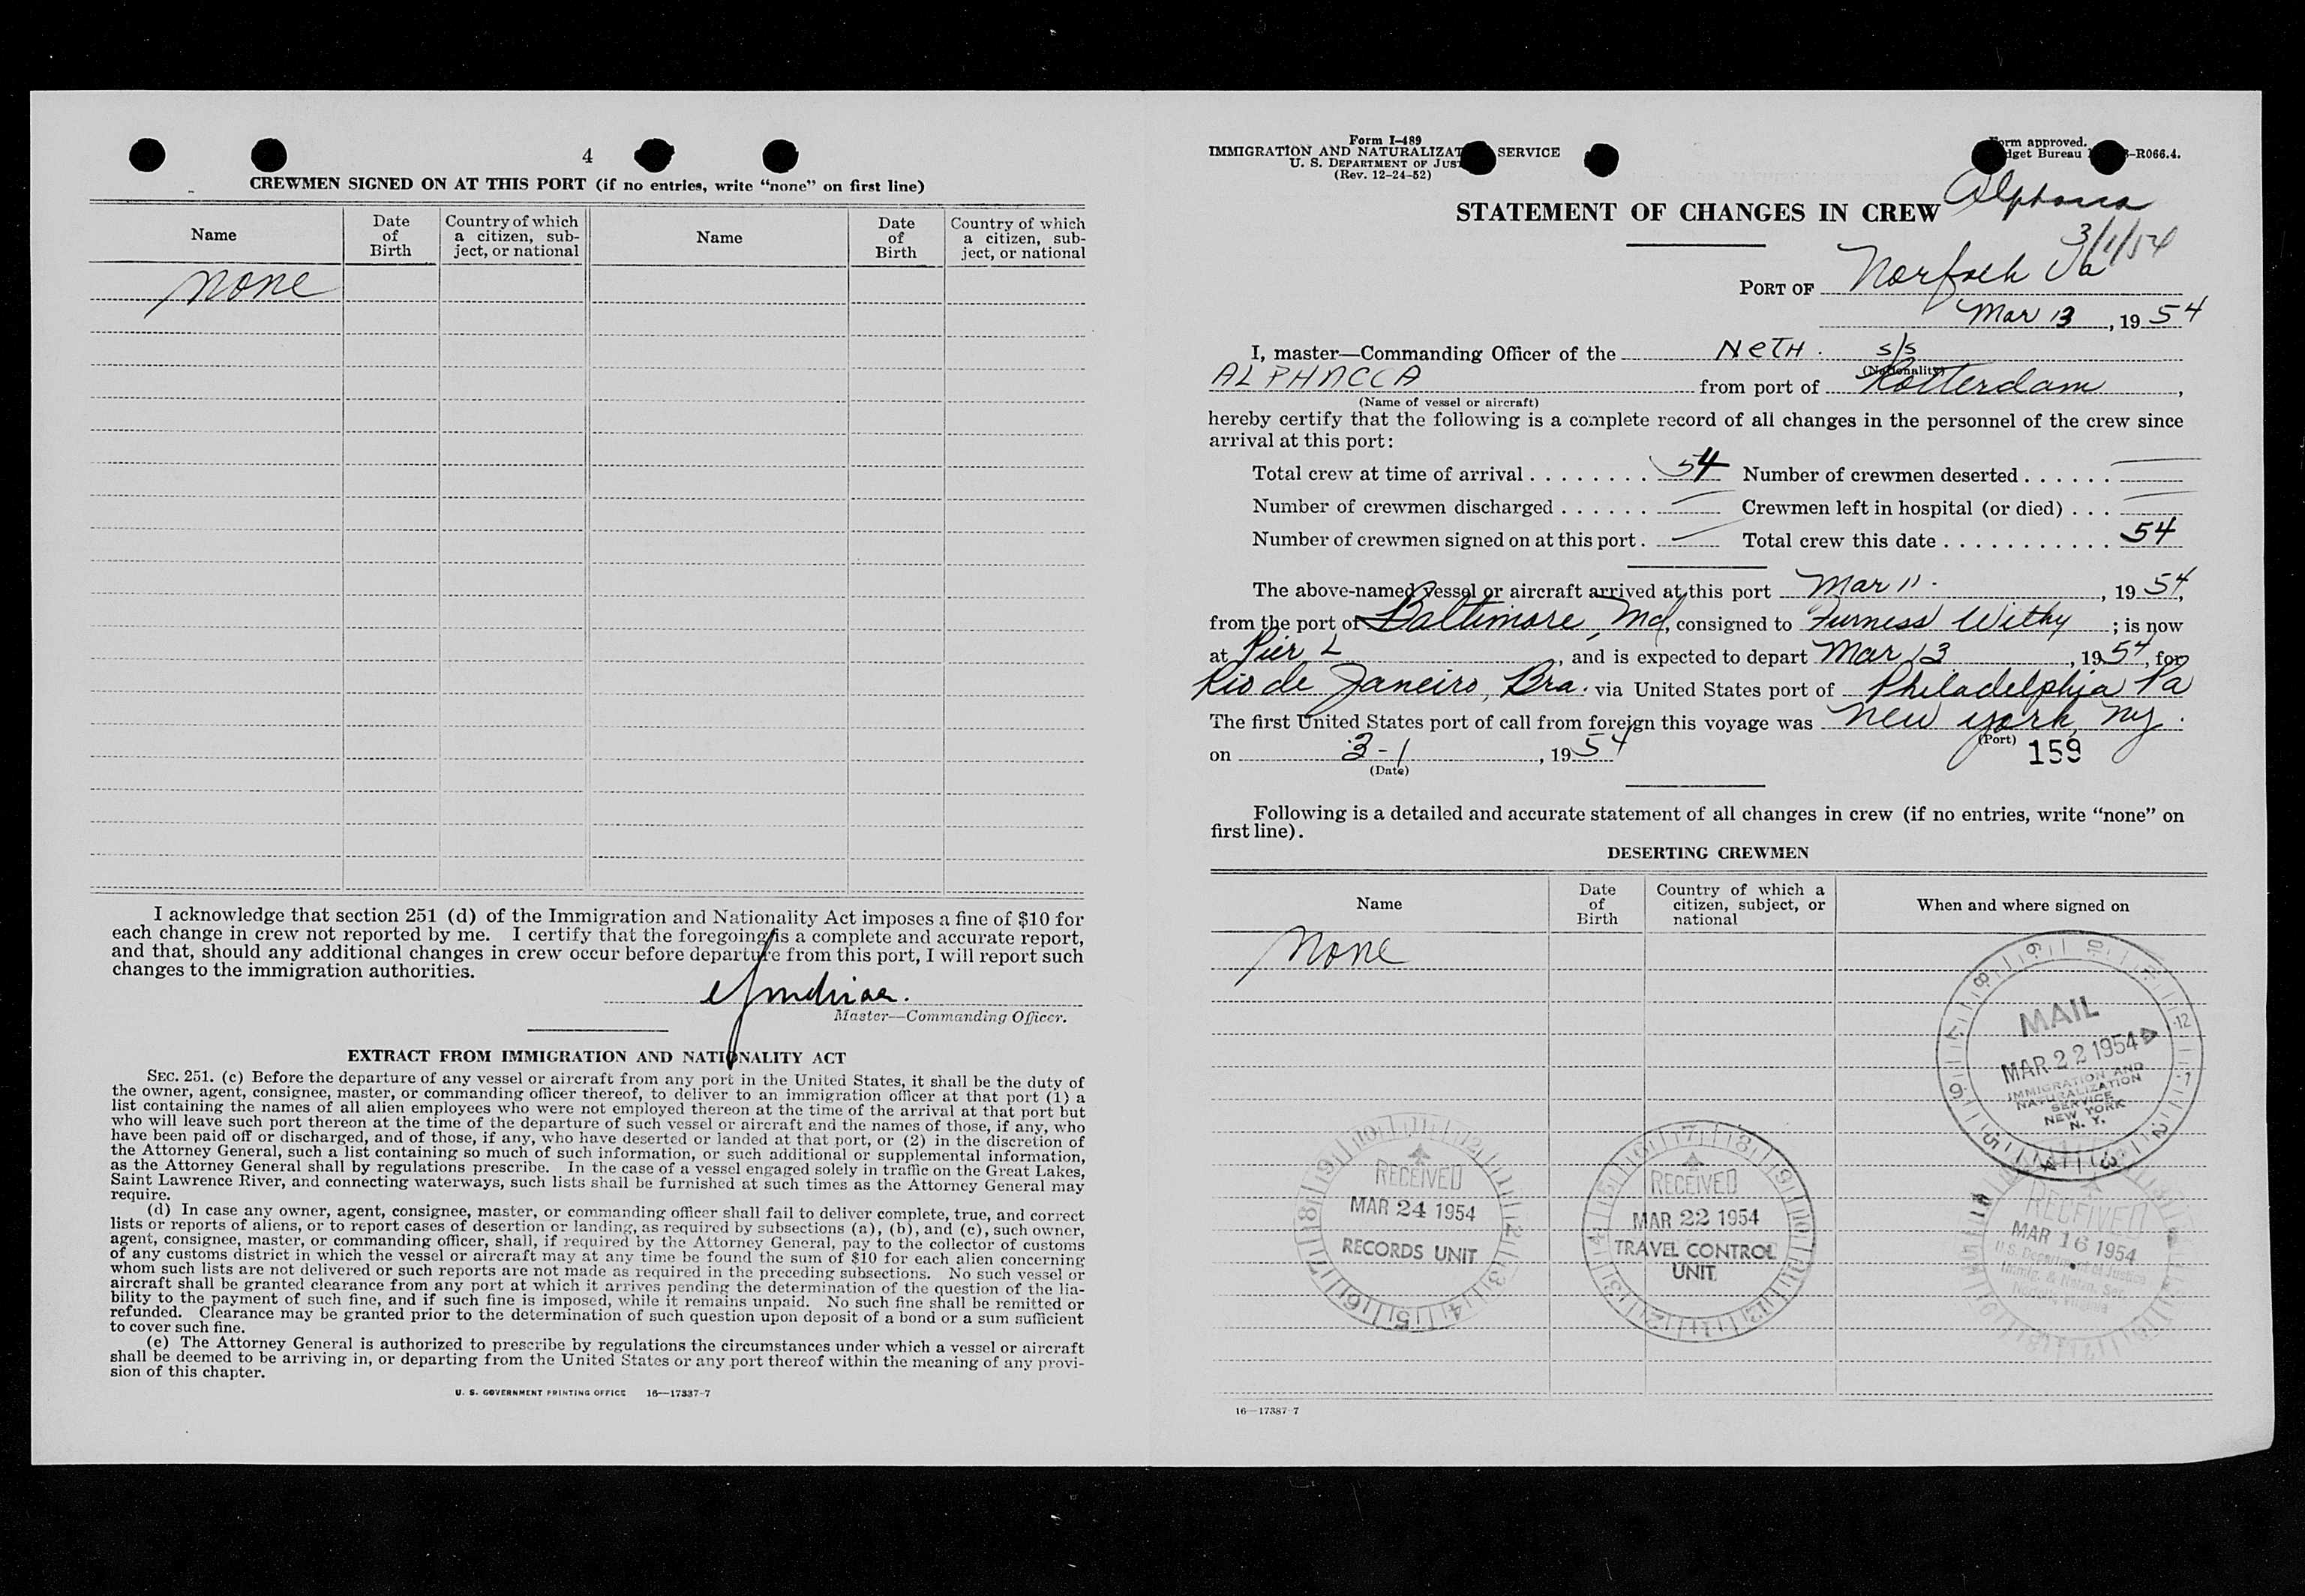 4
CREWMEN SIGNED ON AT THIS PORT (if no entries, write “none” on first line)
Name
Date of Birth
Country of which a citizen, subject, or national
Name
Date of Birth
Country of which a citizen, subject, or national
none
I acknowledge that section 251 (d) of the Immigration and Nationality Act imposes a fine of $10 for
each change in crew not reported by me. I certify that the foregoing is a complete and accurate report,
and that, should any additional changes in crew occur before departure from this port, I will report such
changes to the immigration authorities.
Master—Commanding Officer.
EXTRACT FROM IMMIGRATION AND NATIONALITY ACT
SEC. 251. (c) Before the departure of any vessel or aircraft from any port in the United States, it shall be the duty of
the owner, agent, consignee, master, or commanding officer thereof, to deliver to an immigration officer at that port (1) a
list containing the names of all alien employees who were not employed thereon at the time of the arrival at that port but
who will leave such port thereon at the time of the departure of such vessel or aircraft and the names of those, if any, who
have been paid off or discharged, and of those, if any, who have deserted or landed at that port, or (2) in the discretion of
the Attorney General, such a list containing so much of such information, or such additional or supplemental information,
as the Attorney General shall by regulations prescribe. In the case of a vessel engaged solely in traffic on the Great Lakes,
Saint Lawrence River, and connecting waterways, such lists shall be furnished at such times as the Attorney General may
require.
(d) In case any owner, agent, consignee, master, or commanding officer shall fail to deliver complete, true, and correct
lists or reports of aliens, or to report cases of desertion or landing, as required by subsections (a), (b), and (c), such owner,
agent, consignee, master, or commanding officer, shall, if required by the Attorney General, pay to the collector of customs
of any customs district in which the vessel or aircraft may at any time be found the sum of $10 for each alien concerning
whom such lists are not delivered or such reports are not made as required in the preceding subsections. No such vessel or
aircraft shall be granted clearance from any port at which it arrives pending the determination of the question of the lia-
bility to the payment of such fine, and if such fine is imposed, while it remains unpaid. No such fine shall be remitted or
refunded. Clearance may be granted prior to the determination of such question upon deposit of a bond or a sum sufficient
to cover such fine.
(e) The Attorney General is authorized to prescribe by regulations the circumstances under which a vessel or aircraft
shall be deemed to be arriving in, or departing from the United States or any port thereof within the meaning of any provi-
sion of this chapter.
U. S. GOVERNMENT PRINTING OFFICE 16—17387-7
Form I-489
IMMIGRATION AND NATURALIZAT SERVICE
U. S. DEPARTMENT OF JUST
(Rev. 12-24-52)
orm approved.
dget Bureau -R066.4.
STATEMENT OF CHANGES IN CREW
3/1/54
PORT OF Norfolk Va
Mar 13, 1954
I, master—Commanding Officer of the NETH. S/S
(Nationality)
ALPHACCA from port of Rotterdam,
(Name of vessel or aircraft)
hereby certify that the following is a complete record of all changes in the personnel of the crew since
arrival at this port:
Total crew at time of arrival . . . . . . . . 54 Number of crewmen deserted . . . . . . —
Number of crewmen discharged . . . . . . — Crewmen left in hospital (or died) . . . —
Number of crewmen signed on at this port . — Total crew this date . . . . . . . . . . . . 54
The above-named vessel or aircraft arrived at this port Mar 11., 1954,
from the port of Baltimore, Md, consigned to Furness Withy ; is now
at Pier L, and is expected to depart Mar 13, 1954, for
Rio de Janeiro, Bra. via United States port of Philadelphia Pa
The first United States port of call from foreign this voyage was New York, NY.
(Port)
on 3-1, 1954
(Date)
159
Following is a detailed and accurate statement of all changes in crew (if no entries, write “none” on
first line).
DESERTING CREWMEN
Name
Date of Birth
Country of which a citizen, subject, or national
When and where signed on
none
MAIL
MAR 22 1954
IMMIGRATION AND
NATURALIZATION
SERVICE
NEW YORK
N. Y.
RECEIVED
MAR 24 1954
RECORDS UNIT
RECEIVED
MAR 22 1954
TRAVEL CONTROL
UNIT
RECEIVED
MAR 16 1954
U.S. Department of Justice
Immig. & Natzn. Ser.
Norfolk, Virginia
16—17387-7